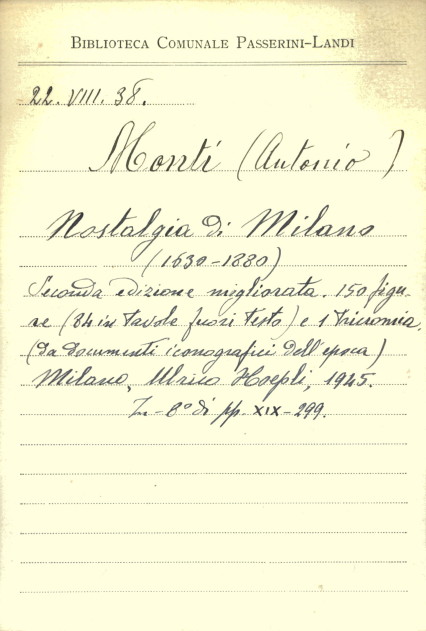 BIBLIOTECA COMUNALE PASSERINI-LANDI
22. VIII. 38.
Monti (Antonio)
Nostalgia di Milano
(1630-1880)
Seconda edizione migliorata. 150 figu-
re (84 in tavole fuori testo) e 1 tricromia,
(da documenti iconografici dell'epoca)
Milano, Ulrico Hoepli, 1945.
In-8° di pp. XIX-299.